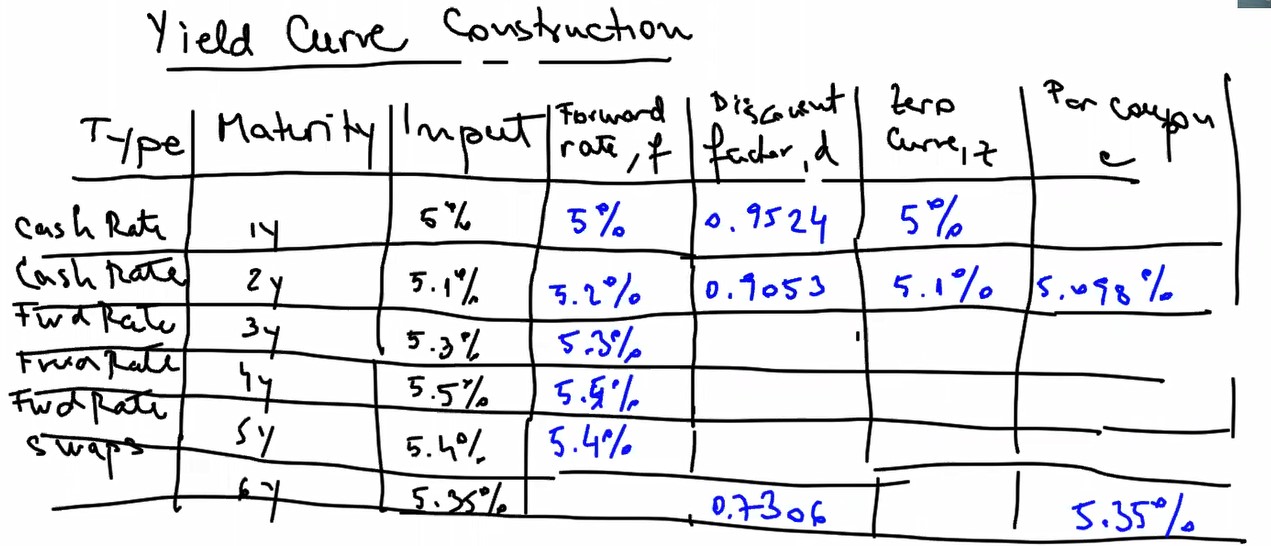 Yield Curve Construction
Type Maturity Input Forward rate, f Discount factor, d Zero Curve, z Par coupon c
Cash Rate 1y 5% 5% 0.9524 5%
Cash Rate 2y 5.1% 5.2% 0.9053 5.1% 5.098%
Fwd Rate 3y 5.3% 5.3%
Fwd Rate 4y 5.5% 5.5%
Fwd Rate 5y 5.4% 5.4%
Swaps 6y 5.35% 0.7306 5.35%